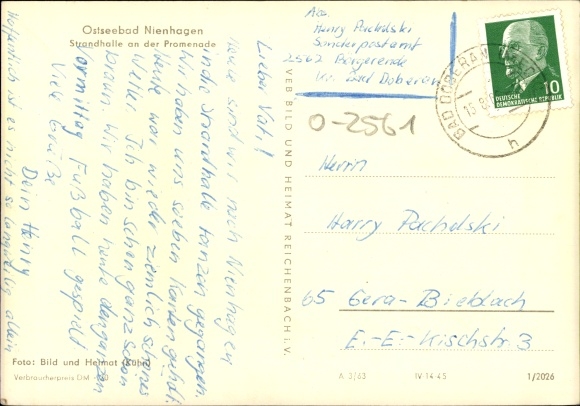 Ostseebad Nienhagen
Strandhalle an der Promenade
Lieber Vati!
Heute sind wir nach Nienhagen
in die Strandhalle tanzen gegangen.
Wir haben uns soeben Karten geholt.
Heute war wieder ziemlich schönes
Wetter. Ich bin schon ganz schön
braun. Wir haben heute den ganzen
Vormittag Fußball gespielt
Viele Grüße
Dein Henry
Hoffentlich ist es nicht so langweilig allein
Foto: Bild und Heimat
Verbraucherpreis DM
VEB BILD UND HEIMAT REICHENBACH i. V.
Abs.
Henry Pachelski
Sonderpostamt
2562 Börgerende
Kr. Bad Doberan
O-2561
BAD DOBERAN
15.8.
h
DEUTSCHE
DEMOKRATISCHE REPUBLIK
10
Herrn
Harry Pachelski
65 Gera-Bieblach
E.-E.-Kischstr. 3
A 3/63 IV-14-45 1/2026